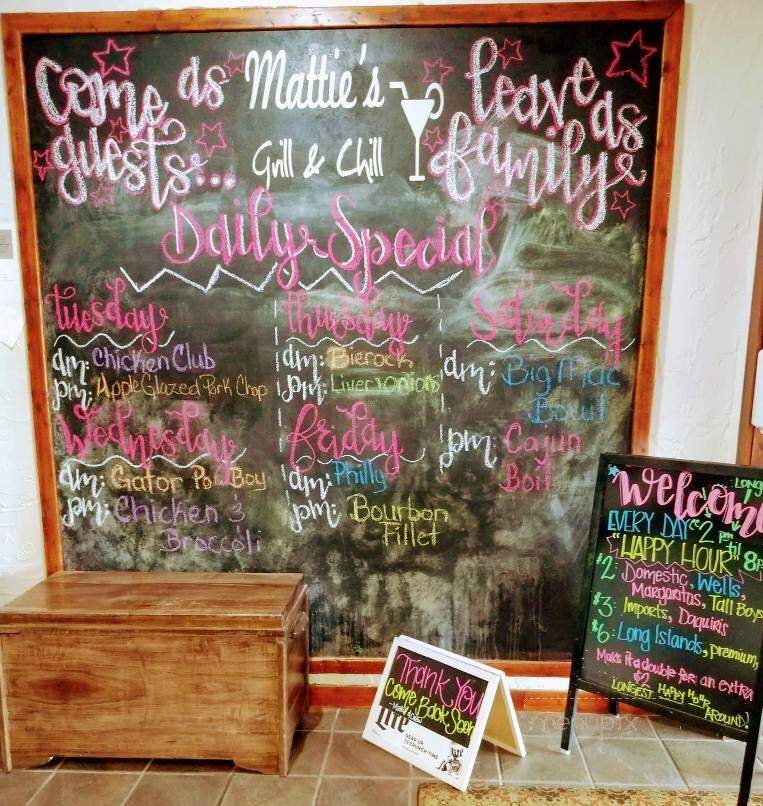 Come as guests...
Mattie's
Grill & Chill
leave as family
Daily Special
tuesday
am: Chicken Club
pm: Apple Glazed Pork Chop
Wednesday
am: Gator Po Boy
pm: Chicken & Broccoli
thursday
am: Bierock
pm: Liver & Onions
friday
am: Philly
pm: Bourbon Fillet
Saturday
am: Big Mac Bowl
pm: Cajun Boil
Thank You
Come Back Soon
Lite
GEAR UP
IT'S CRUNCH TIME
Welcome
EVERY DAY 2 pm 'til 8p
"HAPPY HOUR"
$2: Domestic, Wells,
Margaritas, Tall Boys
$3: Imports, Daquiris
$6: Long Islands, premium,
Make it a double for an extra
$2
LONGEST HAPPY HOUR
AROUND!